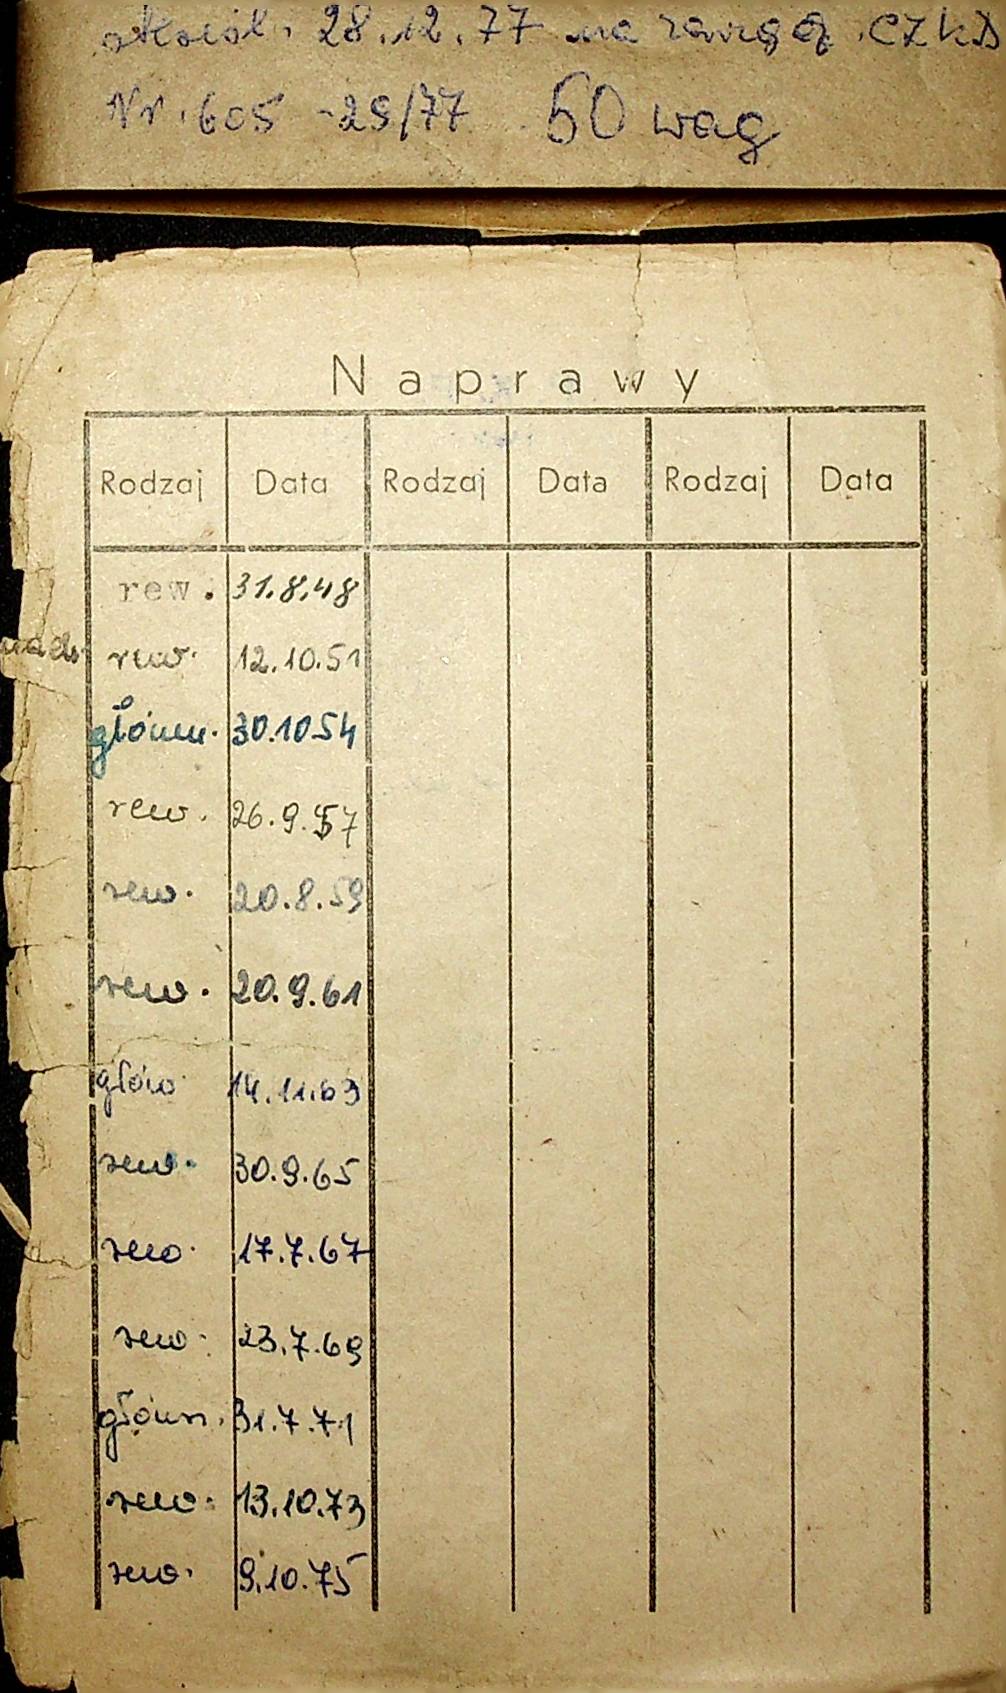 28.12.77 na CZKD
Nr. 605 -29/77 50 wag
Naprawy
Rodzaj Data Rodzaj Data Rodzaj Data
rew. 31.8.48
rew. 12.10.51
główn. 30.10.54
rew. 26.9.57
rew. 20.8.59
rew. 20.9.61
głów 14.11.63
rew. 30.9.65
rew. 17.7.67
rew. 23.7.69
główn. 31.7.71
rew. 13.10.73
rew. 9.10.75